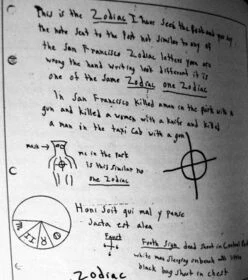 This is the Zodiac I have seen the Post and you say
the note sent to the Post not similar to any of
the San Francisco Zodiac letters you are
wrong the hand writing look different it is
one of the same Zodiac one Zodiac
In San Francisco killed a man in the park with a
gun and killed a women with a knife and killed
a man in the taxi cab with a gun
mask
me in the park
is this similar no
one Zodiac
Honi Soit qui mal y pense
Jacta est alea
Faust
Forth Sign dead shoot in Central Park
white man sleeping on bench with little
black bag shoot in chest
Zodiac